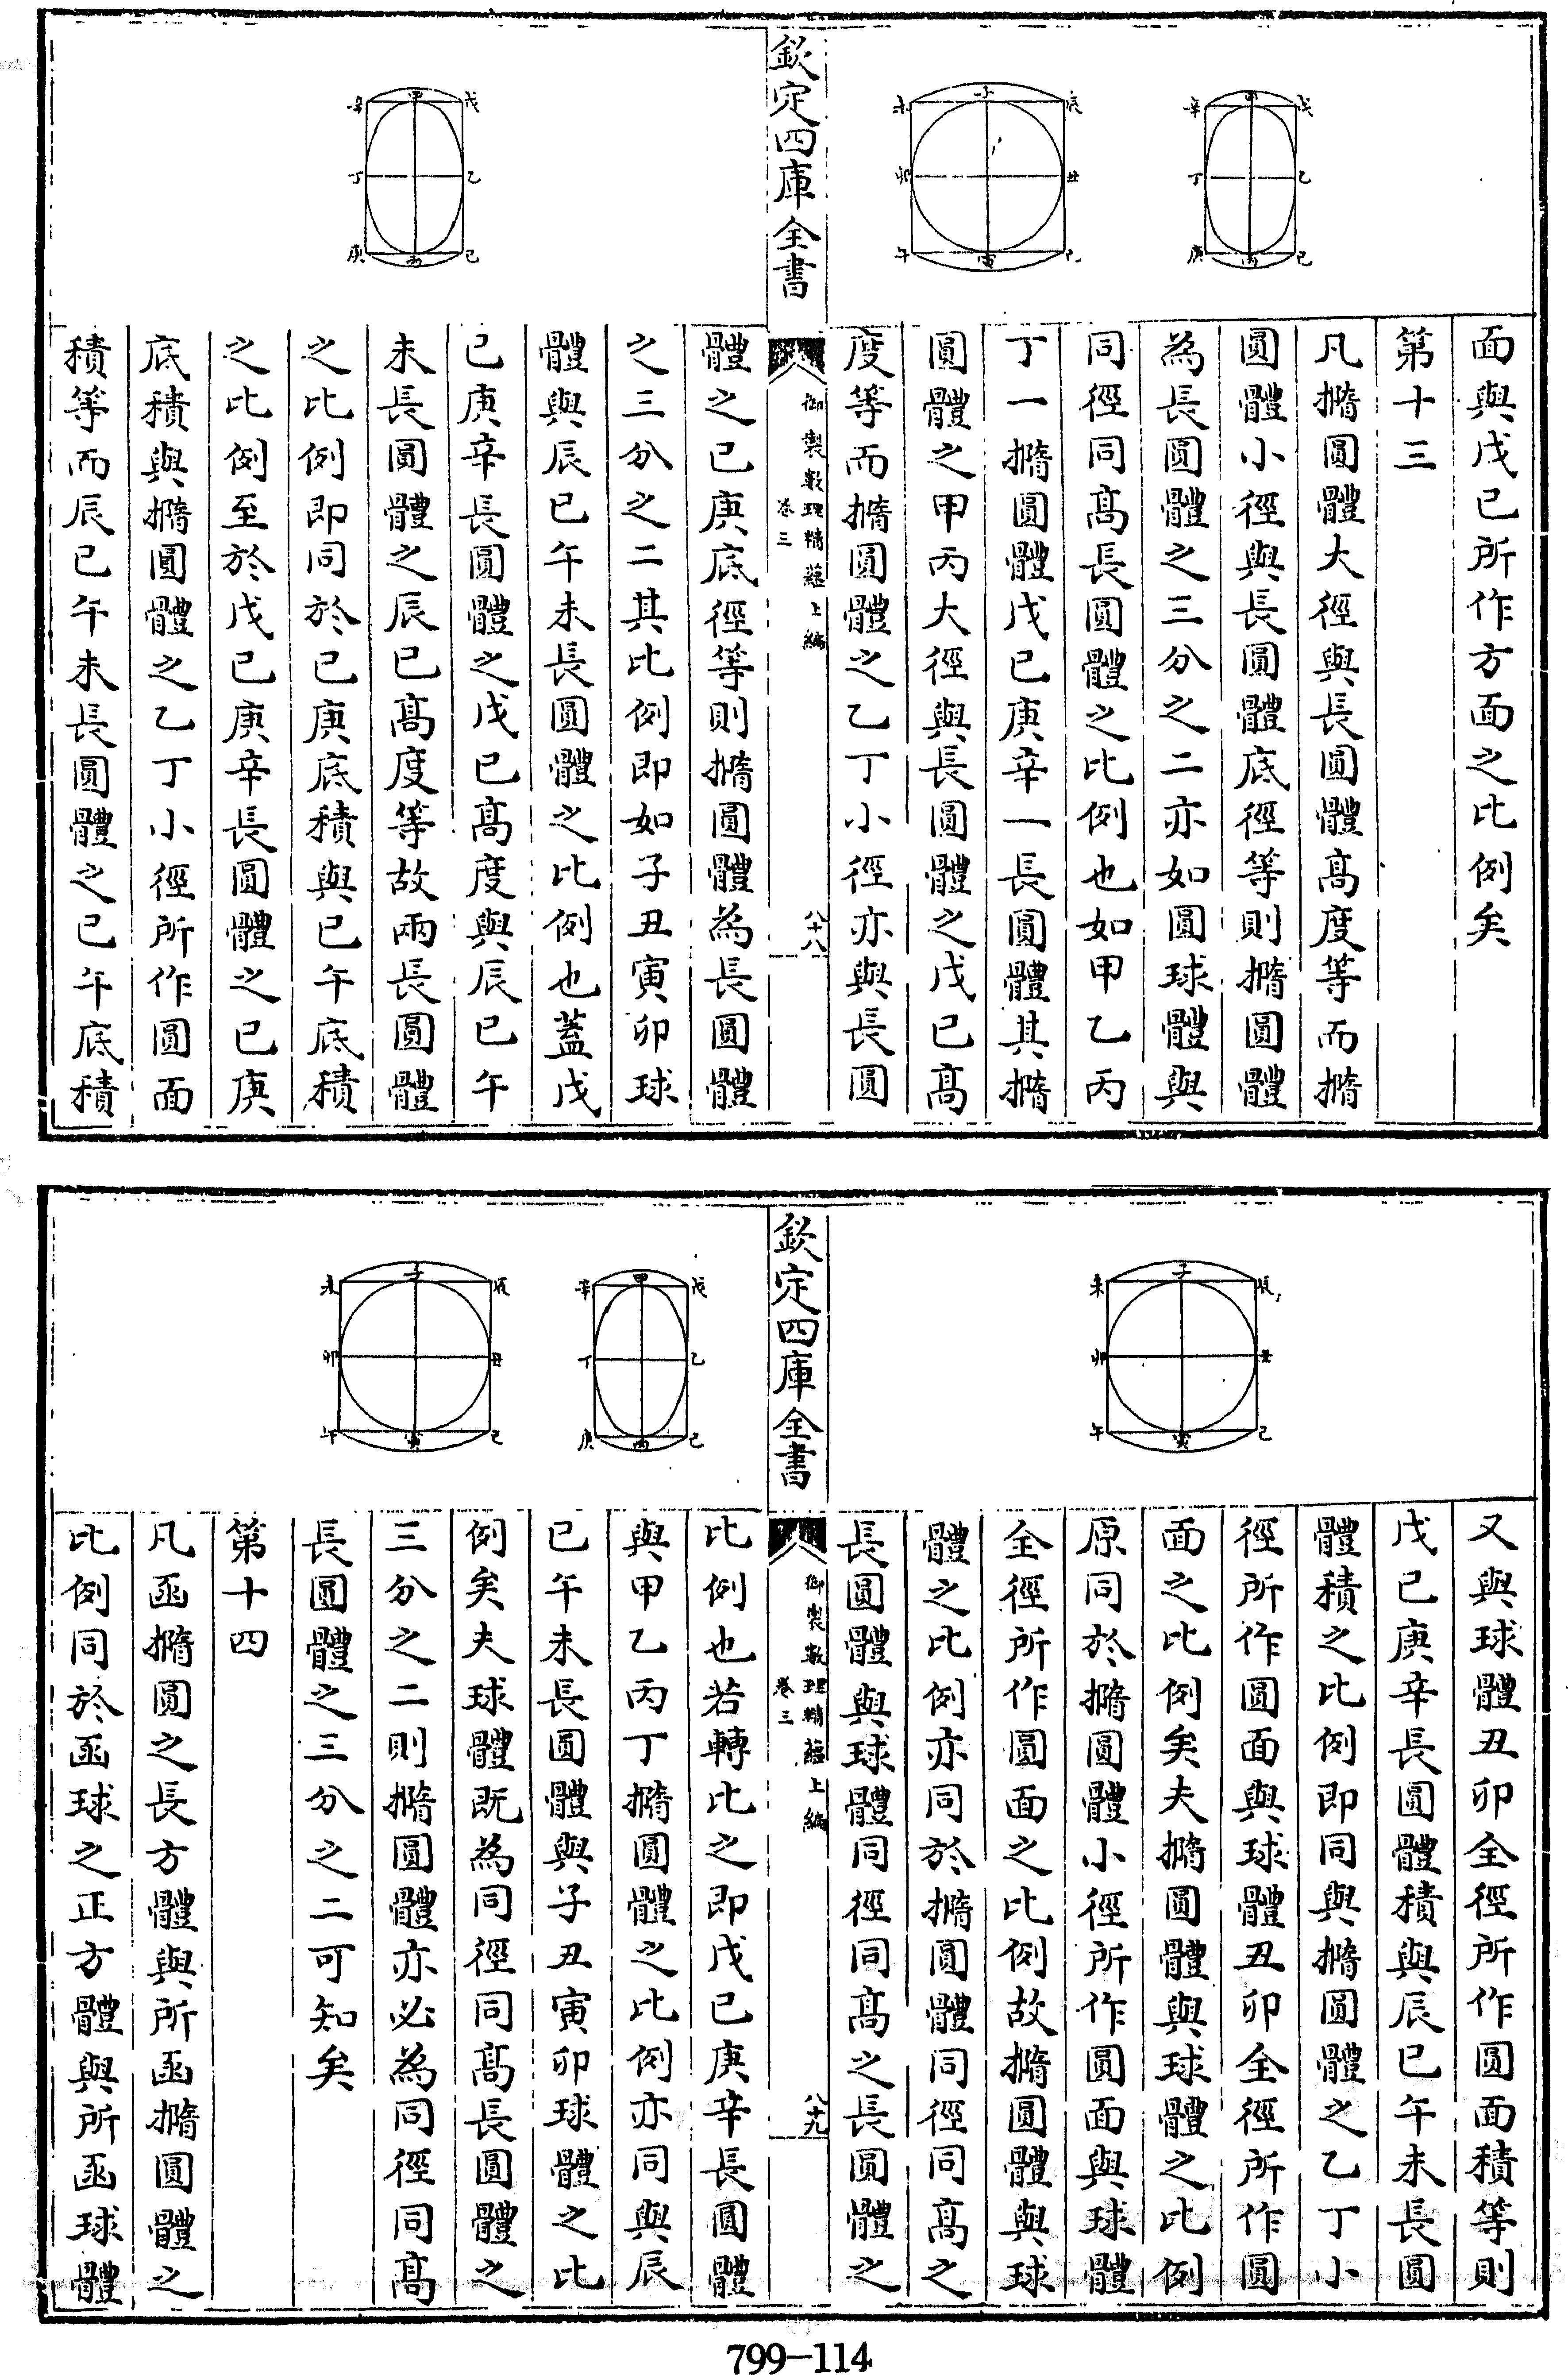 面與戊己所作方面之比例矣
第十三
凡撱圓體大徑與長圓體高度等而撱
圓體小徑與長圓體底徑等則撱圓體
為長圓體之三分之二亦如圓球體與
同徑同高長圓體之比例也如甲乙丙
丁一撱圓體戊己庚辛一長圓體其撱
圓體之甲丙大徑與長圓體之戊己高
度等而撱圓體之乙丁小徑亦與長圓
戊 甲 辛 乙 丁 己 丙 庚
辰 子 未 丑 卯 巳 寅 午
欽定四庫全書
御製數理精蘊上編
卷三
八十八
體之己庚底徑等則撱圓體為長圓體
之三分之二其比例即如子丑寅卯球
體與辰巳午未長圓體之比例也蓋戊
己庚辛長圓體之戊己高度與辰巳午
未長圓體之辰巳高度等故兩長圓體
之比例即同於己庚底積與巳午底積
之比例至於戊己庚辛長圓體之己庚
底積與撱圓體之乙丁小徑所作圓面
積等而辰巳午未長圓體之巳午底積
戊 甲 辛 乙 丁 己 丙 庚
又與球體丑卯全徑所作圓面積等則
戊己庚辛長圓體積與辰巳午未長圓
體積之比例即同與撱圓體之乙丁小
徑所作圓面與球體丑卯全徑所作圓
面之比例矣夫撱圓體與球體之比例
原同於撱圓體小徑所作圓面與球體
全徑所作圓面之比例故撱圓體與球
體之比例亦同於撱圓體同徑同高之
長圓體與球體同徑同高之長圓體之
辰 子 未 丑 卯 巳 寅 午
欽定四庫全書
御製數理精蘊上編
卷三
八十九
比例也若轉比之即戊己庚辛長圓體
與甲乙丙丁撱圓體之比例亦同與辰
巳午未長圓體與子丑寅卯球體之比
例矣夫球體既為同徑同高長圓體之
三分之二則撱圓體亦必為同徑同高
長圓體之三分之二可知矣
第十四
凡函撱圓之長方體與所函撱圓體之
比例同於函球之正方體與所函球體
戊 甲 辛 乙 丁 己 丙 庚
辰 子 未 丑 卯 巳 寅 午
799-114